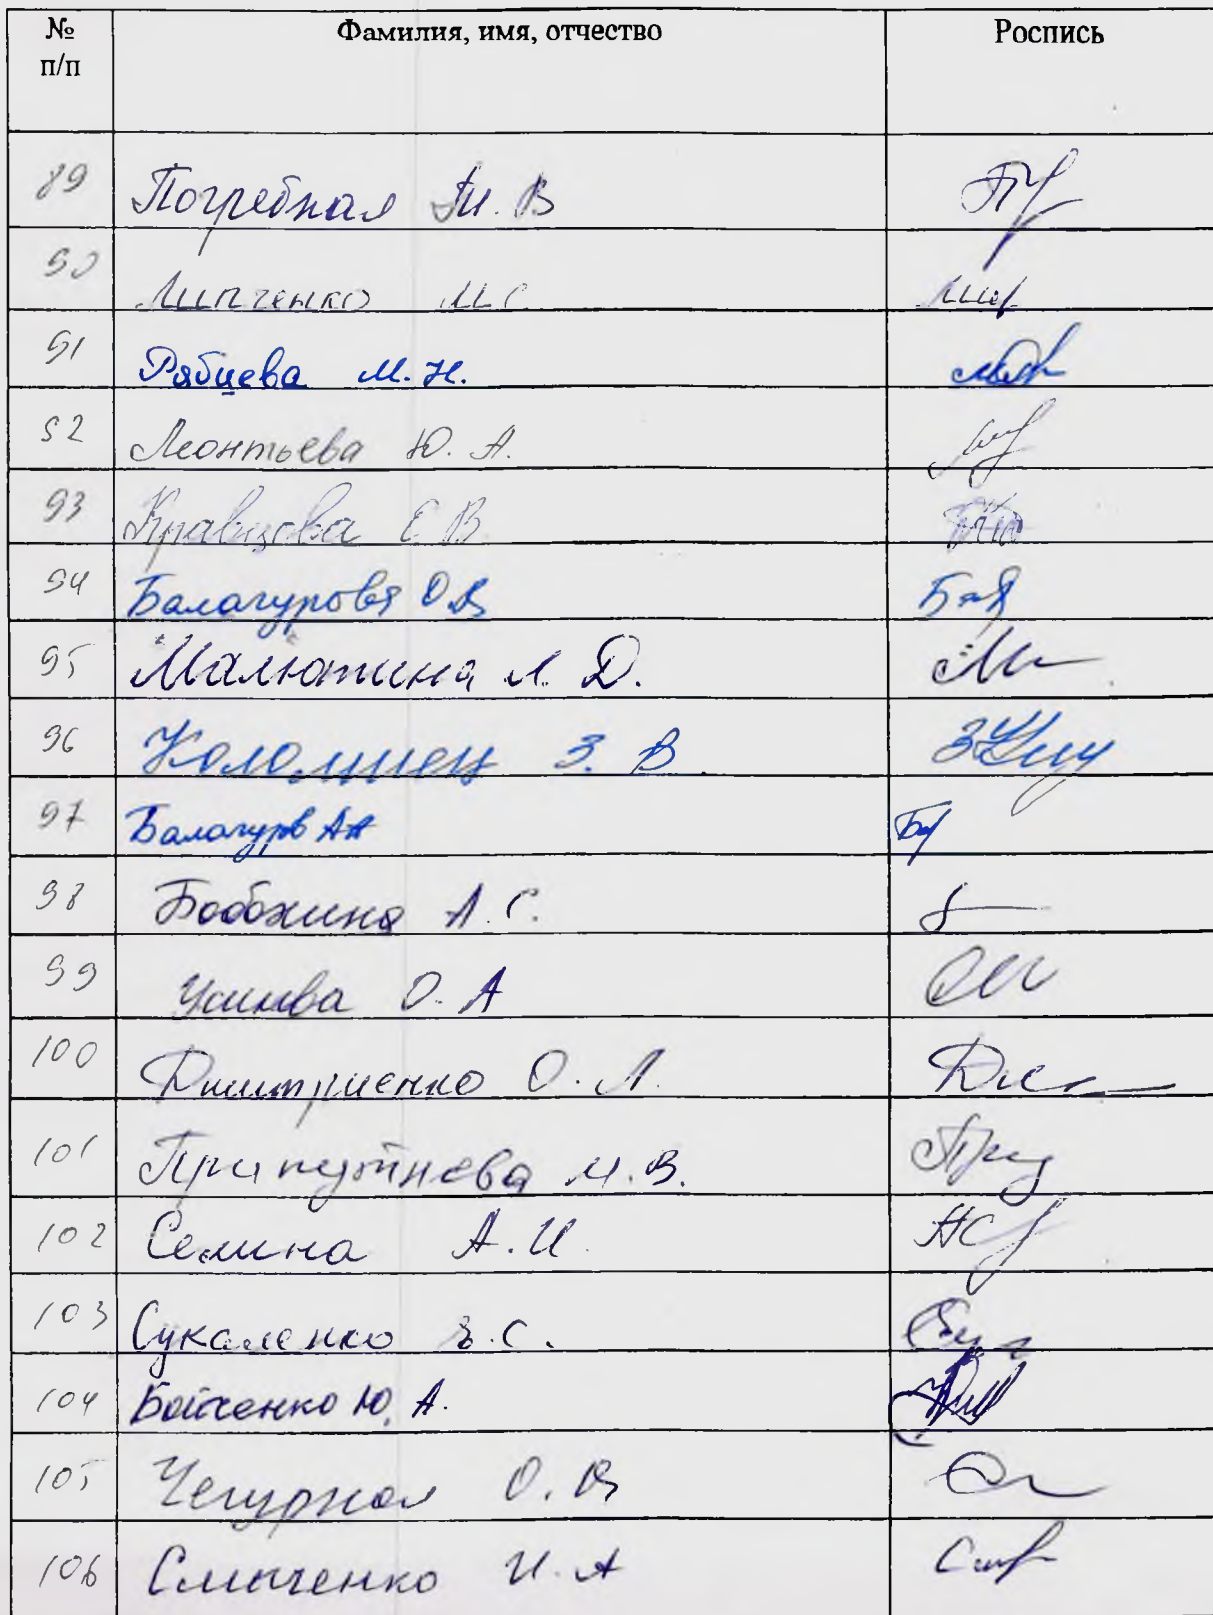 № п/п Фамилия, имя, отчество Роспись
89 Погребная Т.В
90 Липченко М С
91 Рябцева М.Н.
92 Леонтьева Ю. А.
93 Кравцова Е В
94 Балагурова О В
95 Малютина Л. Д.
96 Коломиец З. В.
97 Балагурв АА
98 Бообжина А. С.
99 О. А
100 Дмитриенко О. Л.
101 Припутнева М.В.
102 Семина А. И.
103 Сукаленко С.
104 Бойченко Ю. А.
105 Чегурная О. В
106 Смыченко И. А